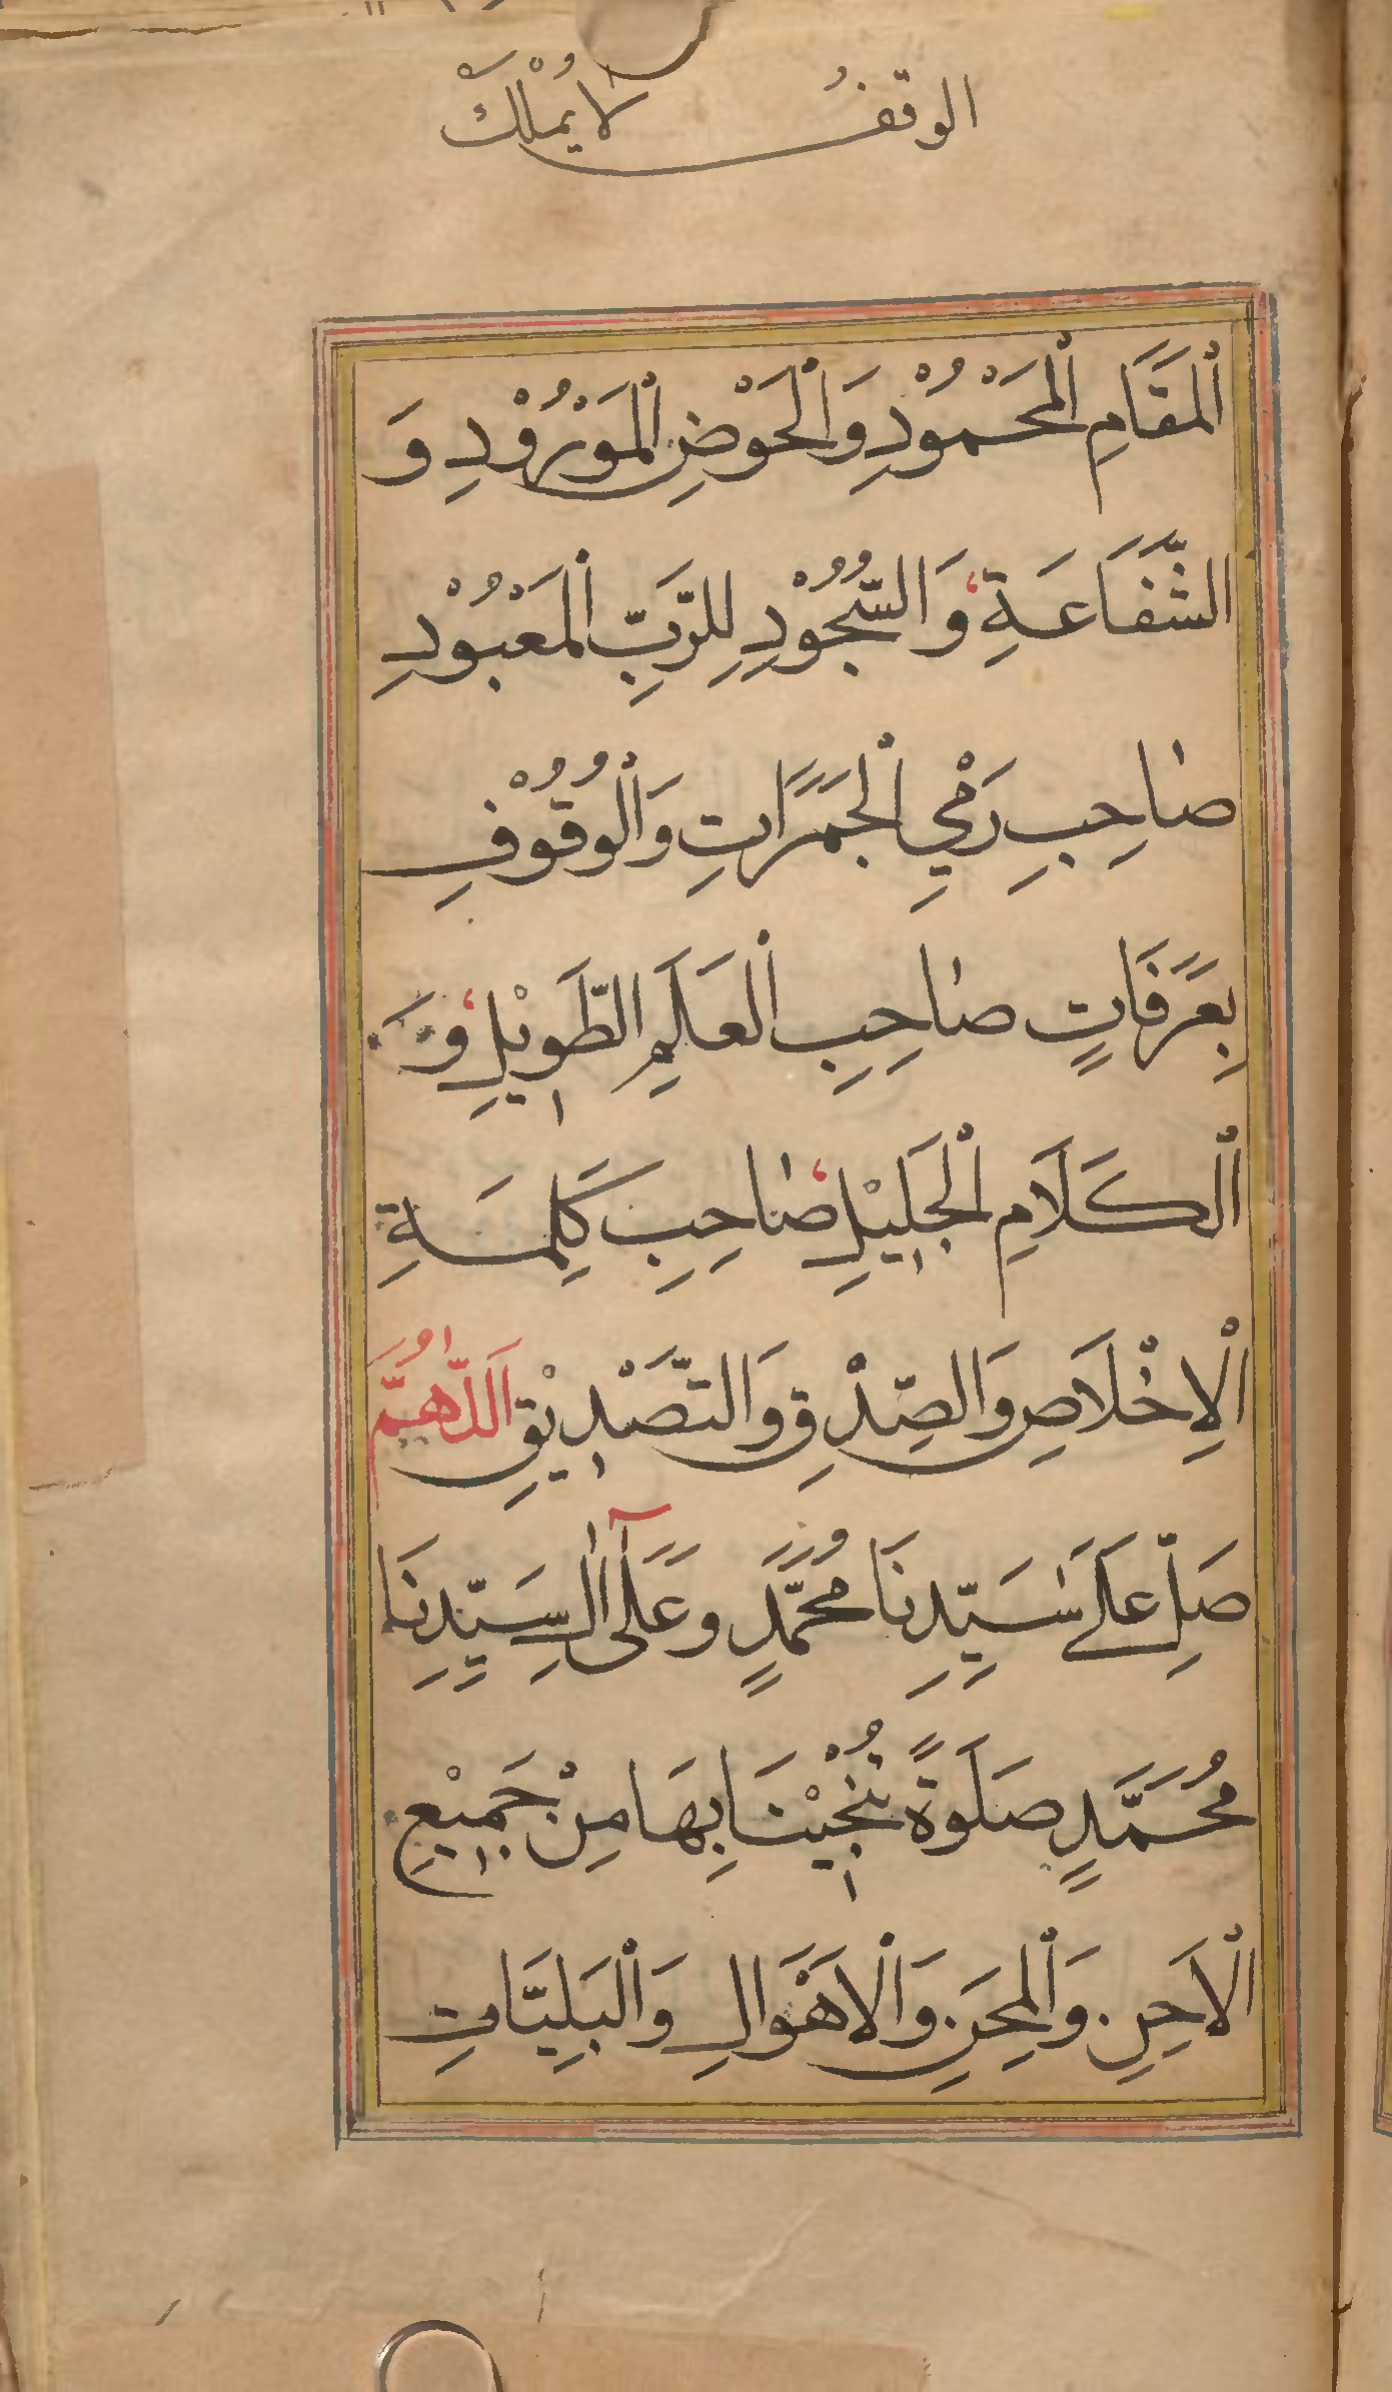 الوقف لَا يُمْلَكْ
اَلْمَقَامِ الْمَحْمُوْدِ وَالْحَوْضِ الْمَوْرُوْدِ وَ
الشَّفَاعَةِ وَالسُّجُوْدِ لِلرَّبِّ الْمَعْبُوْدِ
صَاحِبِ رَمْيِ الْجَمَرَاتِ وَالْوُقُوْفِ
بِعَرَفَاتٍ صَاحِبِ الْعَلَمِ الطَّوِيْلِ وَ
الْكَلَامِ الْجَلِيْلِ صَاحِبِ كَلِمَةِ
الْاِخْلَاصِ وَالصِّدْقِ وَالتَّصْدِيْقِ اَللّٰهُمَّ
صَلِّ عَلَى سَيِّدِنَا مُحَمَّدٍ وَعَلَى آلِ سَيِّدِنَا
مُحَمَّدٍ صَلَوةً تُنْجِيْنَا بِهَا مِنْ جَمِيْعِ
الْاَحِنِ وَالْمِحَنِ وَالْاَهْوَالِ وَالْبَلِيَّاتِ